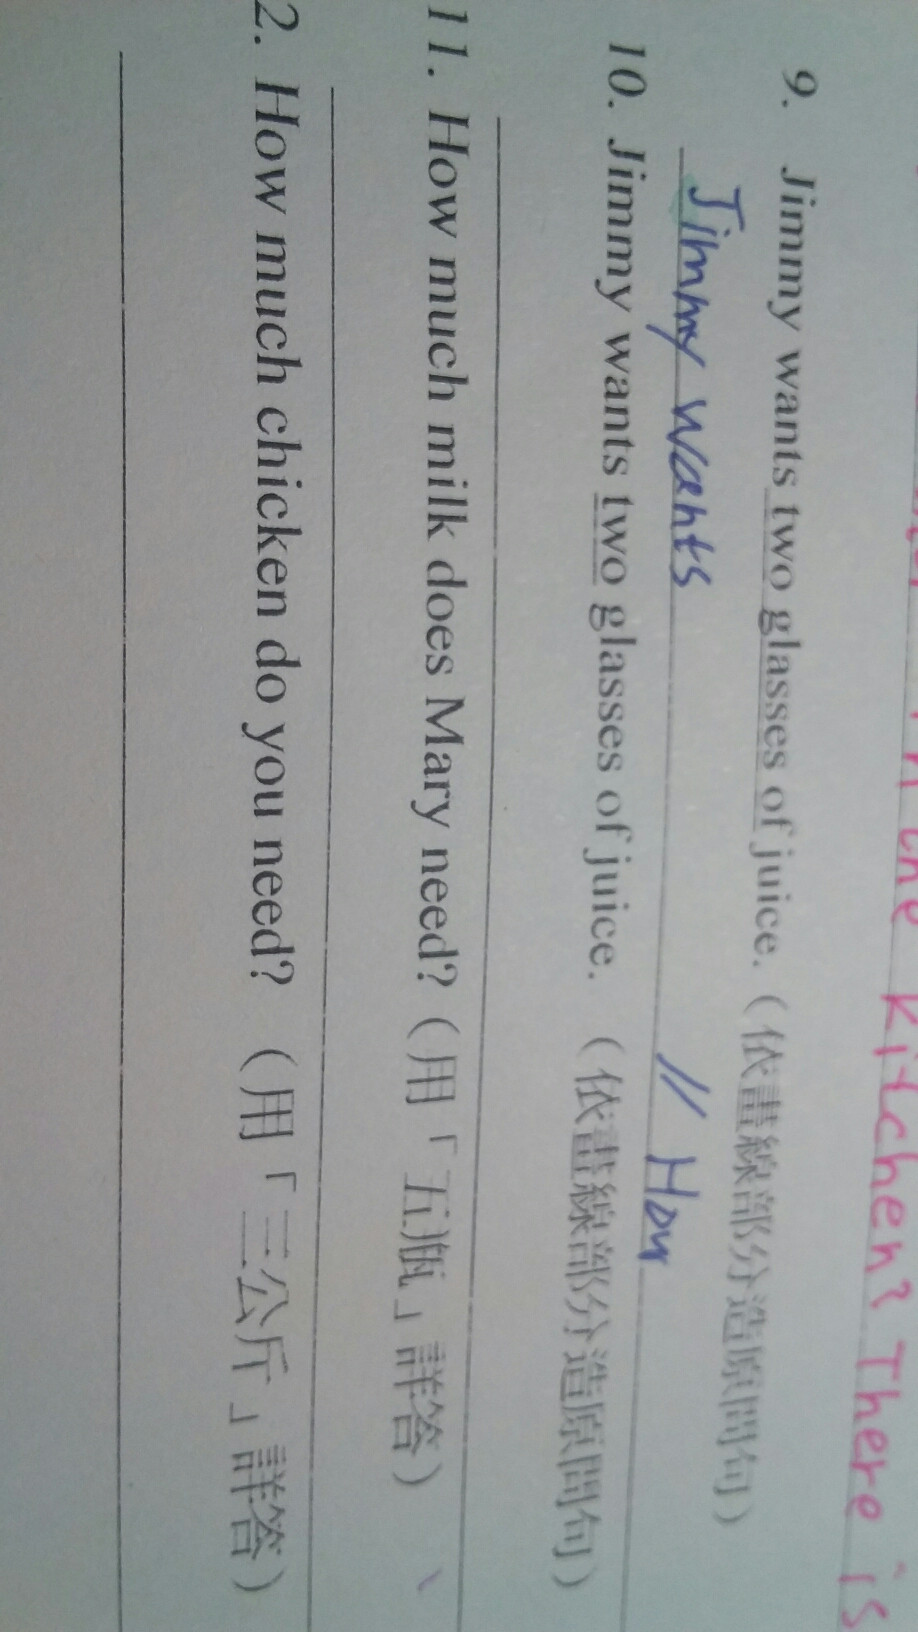 the kitchen? There is
9. Jimmy wants two glasses of juice.（依畫線部分造原問句）
Jimmy wants // How
10. Jimmy wants two glasses of juice.（依畫線部分造原問句）
11. How much milk does Mary need?（用「五瓶」詳答）
2. How much chicken do you need?（用「三公斤」詳答）